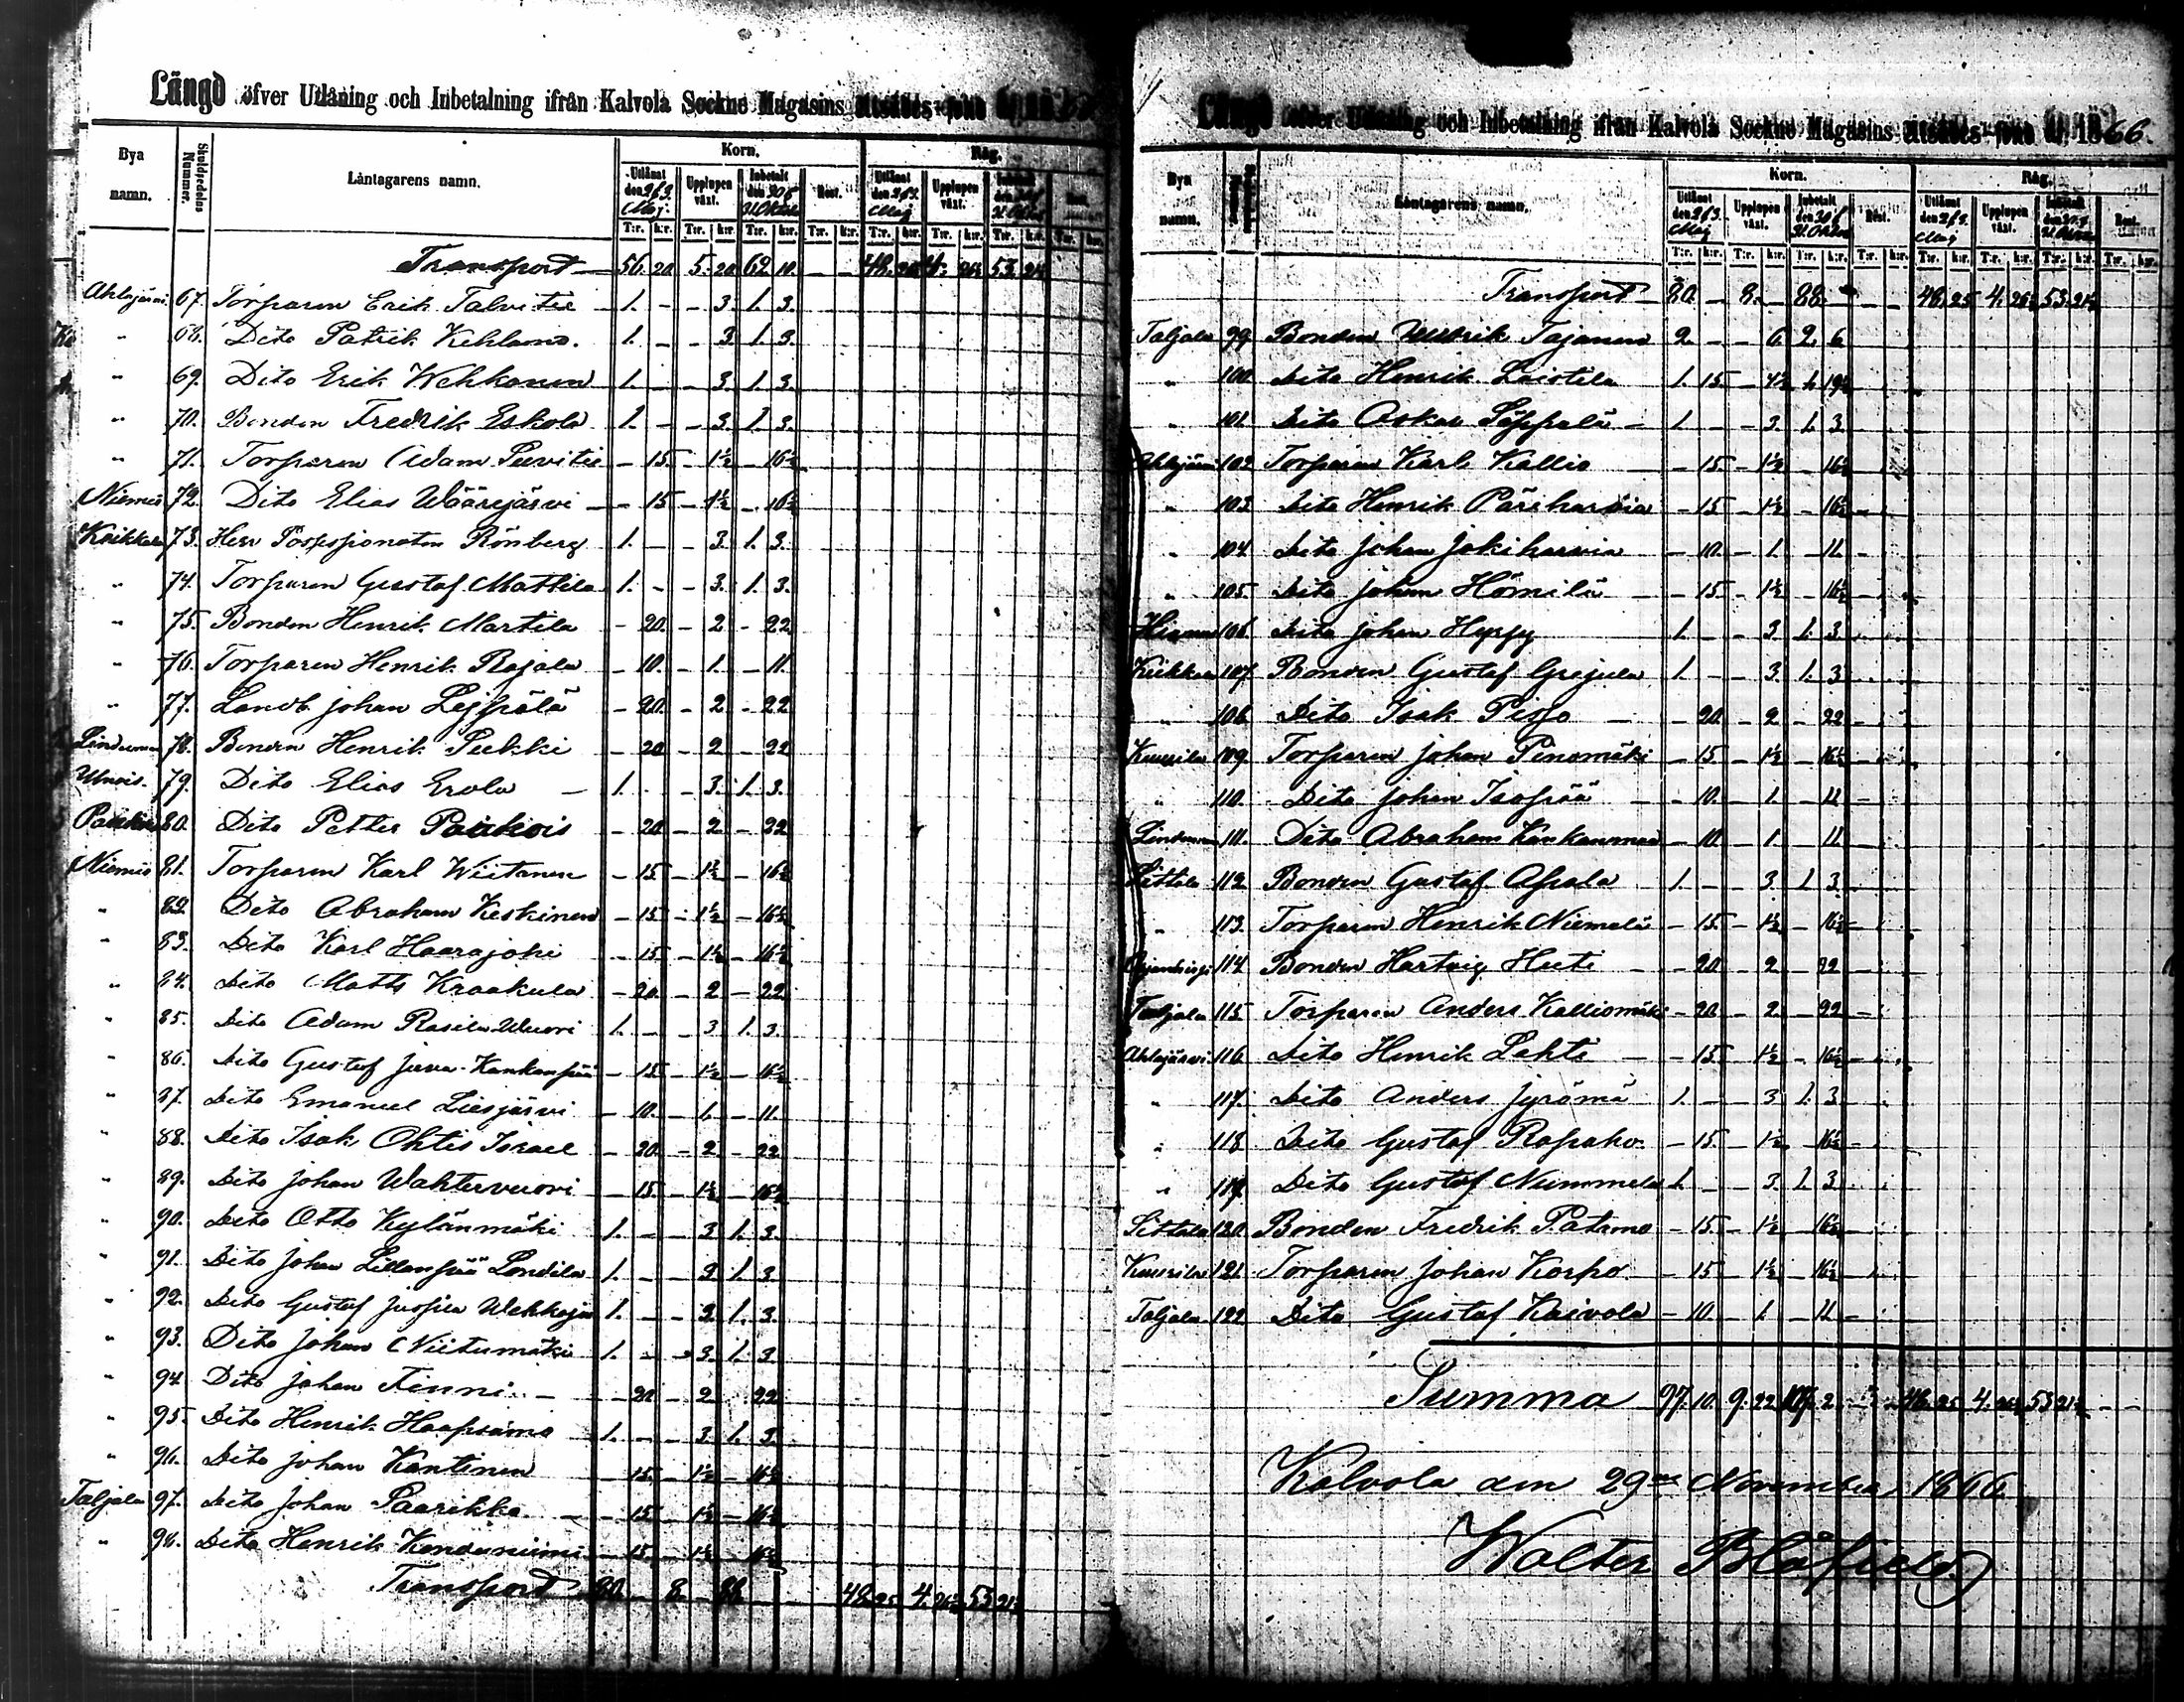 Längd öfver Utlåning och Inbetalning ifrån Kalvola Sockne Magasins
Bya namn. Skuldsedelns Nummer. Låntagarens namn. Korn. Råg.
Utlånt den 2 f 3. Maj. Upplupen växt. Inbetalt Rest. Utlånt den 2 f 3. Maj Upplupen växt.
T:r. k:r. T:r. k:r. T:r. k:r. T:r. k:r. T:r. k:r. T:r. k:r. T:r. k:r. T:r. k:r.
Transport 56. 20. 5. 20 62 10. — — 48. 25 4. 26½ 53. 21½
Ahlajärvi 67. Torparen Erik Talvitie 1. — — 3. 1. 3.
" 68. Dito Patrik Kehlamo. 1. — — 3. 1. 3.
" 69. Dito Erik Wehkonen 1. — — 3. 1. 3.
" 70. Bonden Fredrik Eskola 1. — — 3. 1. 3.
" 71. Torparen Adam — 15. — 1½ — 16½
Niemis 72. Dito Elias Wäärejärvi — 15 — 1½ — 16½
Keikkala 73. Herr Possessionaten Rönberg 1. — — 3. 1. 3.
" 74. Torparen Gustaf Mattila 1. — — 3. 1. 3.
" 75. Bonden Henrik Martila — 20. — 2 — 22
" 76. Torparen Henrik Rajala — 10. — 1. — 11.
" 77. Landb. Johan Leppälä — 20. — 2 — 22
78. Bonden Henrik Pukki — 20 — 2 — 22
79. Dito Elias Erola — 1. — 3. 1. 3.
80. Dito Petter Paukois — 20 — 2 — 22
Niemis 81. Torparen Karl Wiitanen — 15 — 1½ — 16½
" 82. Dito Abraham Keskinen — 15 — 1½ — 16½
" 83. Dito Karl Haarajoki — 15 — 1½ — 16½
" 84. Dito Matts Kraakula — 20. — 2 — 22
" 85. Dito Adam Rasila Wuori 1. — — 3 1. 3.
" 86. Dito Gustaf Juva-Kankanpää — 15 — 1½ — 16½
" 87. Dito Emanuel Liesjärvi — 10. — 1. — 11.
" 88. Dito Isak Ohtis Israel — 20. — 2 — 22
" 89. Dito Johan Wahtervuori — 15. — 1½ — 16½
" 90. Dito Otto Kylänmäki 1. — — 3 1. 3.
" 91. Dito Johan Lillanpää Londila 1. — — 3 1. 3
" 92. Dito Gustaf 1. — — 3. 1. 3.
" 93. Dito Johan Niitumäki 1. — — 3. 1. 3
" 94. Dito Johan Finni — — 20 — 2 22
" 95. Dito Henrik Haapsamo 1. — — 3 1. 3.
" 96. Dito Johan Kantinen — 15. — 1½ — 16½
Taljala 97. Dito Johan Paarikka — 15 — 1½ — 16½
" 98. Dito Henrik — 15. — 1½ — 16½
Transport 80. — 8. — 88. — — 48. 25 4. 26½ 53 21½
Längd öfver Utlåning och Inbetalning ifrån Kalvola Sockne Magasins år 1866.
Bya namn. Låntagarens namn. Korn. Råg.
Utlånt den 2 f 3. Maj Upplupen växt. Inbetalt Rest. Utlånt den 2 f 3. Maj Upplupen växt. Inbetalt Rest.
T:r. k:r. T:r. k:r. T:r. k:r. T:r. k:r. T:r. k:r. T:r. k:r. T:r. k:r. T:r. k:r.
Transport 80. — 8. — 88. — — 48. 25 4. 26½ 53. 21½
Taljala 99. Bonden Tajanen 2. — — 6 2 6
" 100. Dito Henrik Laistila 1. 15 — 4½ 1. 19½
" 101. Dito Oskar Seppälä — 1 — — 3. 1. 3.
Ahlajärvi 102. Torparen Karl Kallio — 15 — 1½ — 16½
" 103. Dito Henrik — 15 — 1½ — 16½
" 104. Dito Johan Jokiharvia — 10. — 1. — 11. —
" 105. Dito Johan Hömilä — — 15 — 1½ — 16½
106. Dito Johan Hyppy 1. — — 3 1. 3
Keikkala 107. Bonden Gustaf Grejula 1. — — 3. 1. 3
" 108. Dito Isak Pispo — — 20. — 2 — 22 —
Kuurila 109. Torparen Johan Pinomäki — 15 — 1½ — 16½
" 110. Dito Johan Isopää — — 10. — 1. — 11 —
111. Dito Abraham Kankanmaa — 10. — 1 — 11.
Littala 112. Bonden Gustaf Apala 1. — — 3. 1. 3.
" 113. Torparen Henrik Niemelä — 15. — 1½ — 16½ —
114. Bonden Hartvig — 20 — 2 — 22 —
Taljala 115. Torparen Anders Kalliomäki — 20. — 2 — 22 —
Ahlajärvi 116. Dito Henrik Lehti — — 15 — 1½ — 16½ —
" 117. Dito Anders Jyrämä 1. — — 3 1. 3
" 118. Dito Gustaf Rapaho — 15. — 1½ — 16½ —
" 119. Dito Gustaf Nummela 1. — — 3. 1. 3
Littala 120. Bonden Fredrik Patamo — 15 — 1½ — 16½
Kuurila 121. Torparen Johan Korpo — 15 — 1½ — 16½ —
Taljala 122. Dito Gustaf Kaivola — 10. — 1. — 11. —
Summa 97. 10. 9. 22 107. 2. — — 48. 25 4. 26½ 53 21½ — —
Kalvola den 29de November 1866
Walter Blåfield